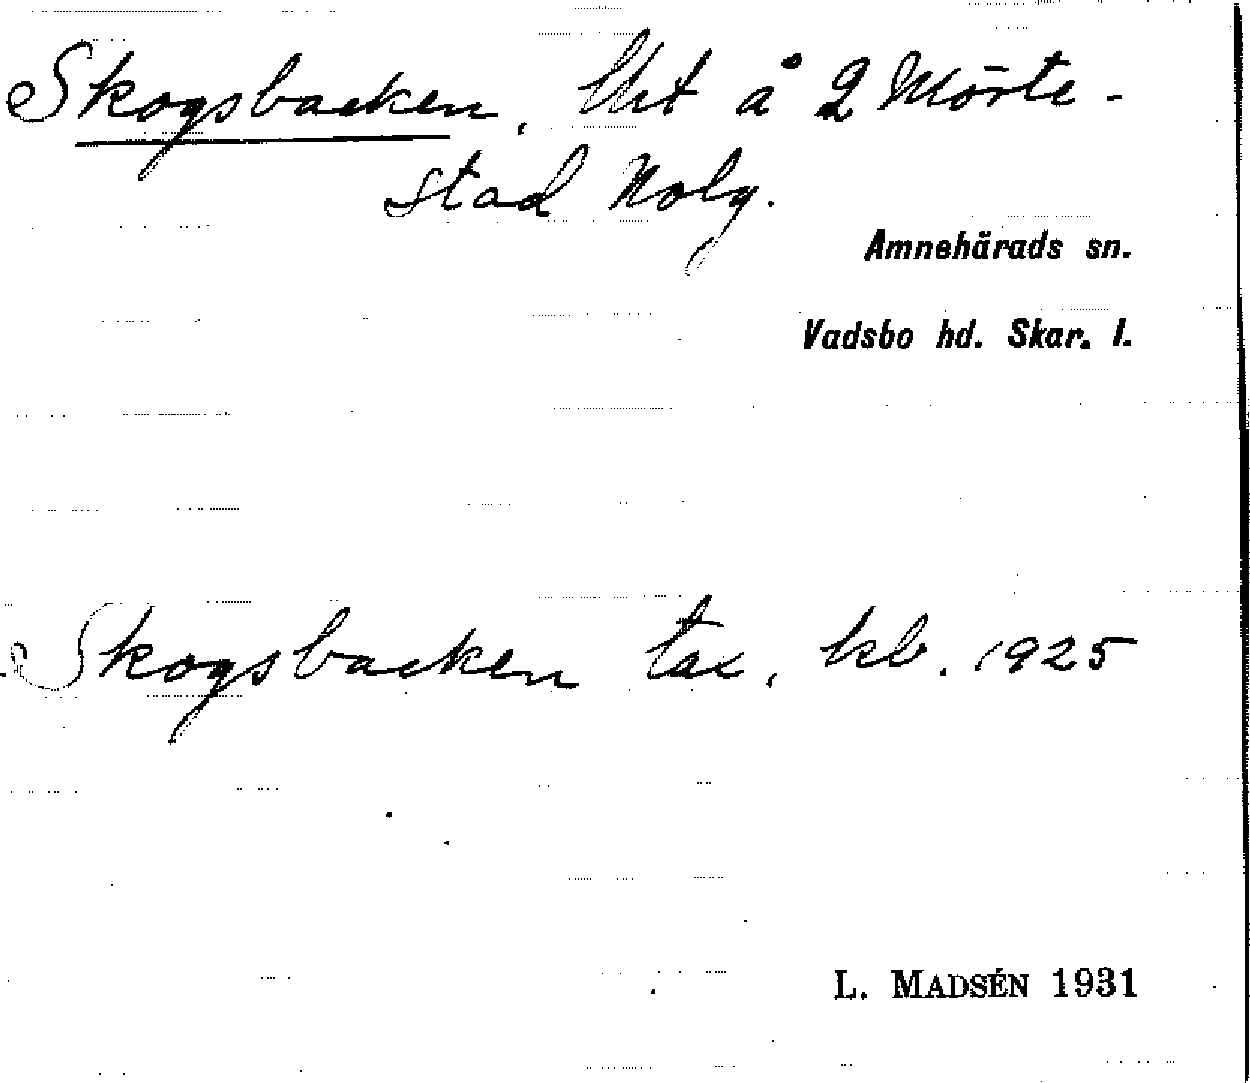 Skogsbacken, lht å 2 Mörte-
stad Nolg.
Amnehärads sn.
Vadsbo hd. Skar. l.
Skogsbacken tax, kb. 1925
L. MADSÉN 1931